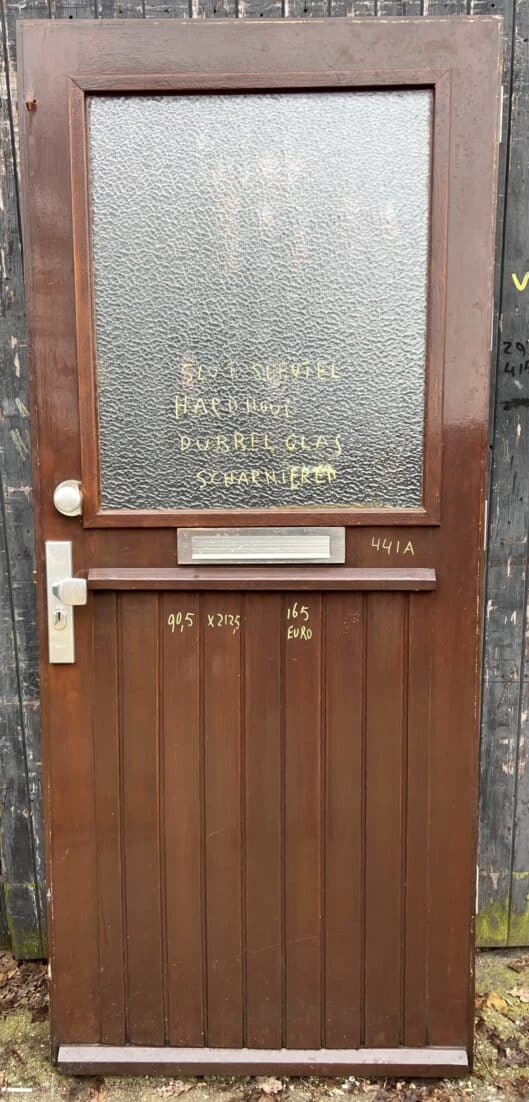 SLOT SLEUTEL
HARDHOUT
DUBBEL GLAS
SCHARNIEREN
441A
90,5 X 212,5
165
EURO